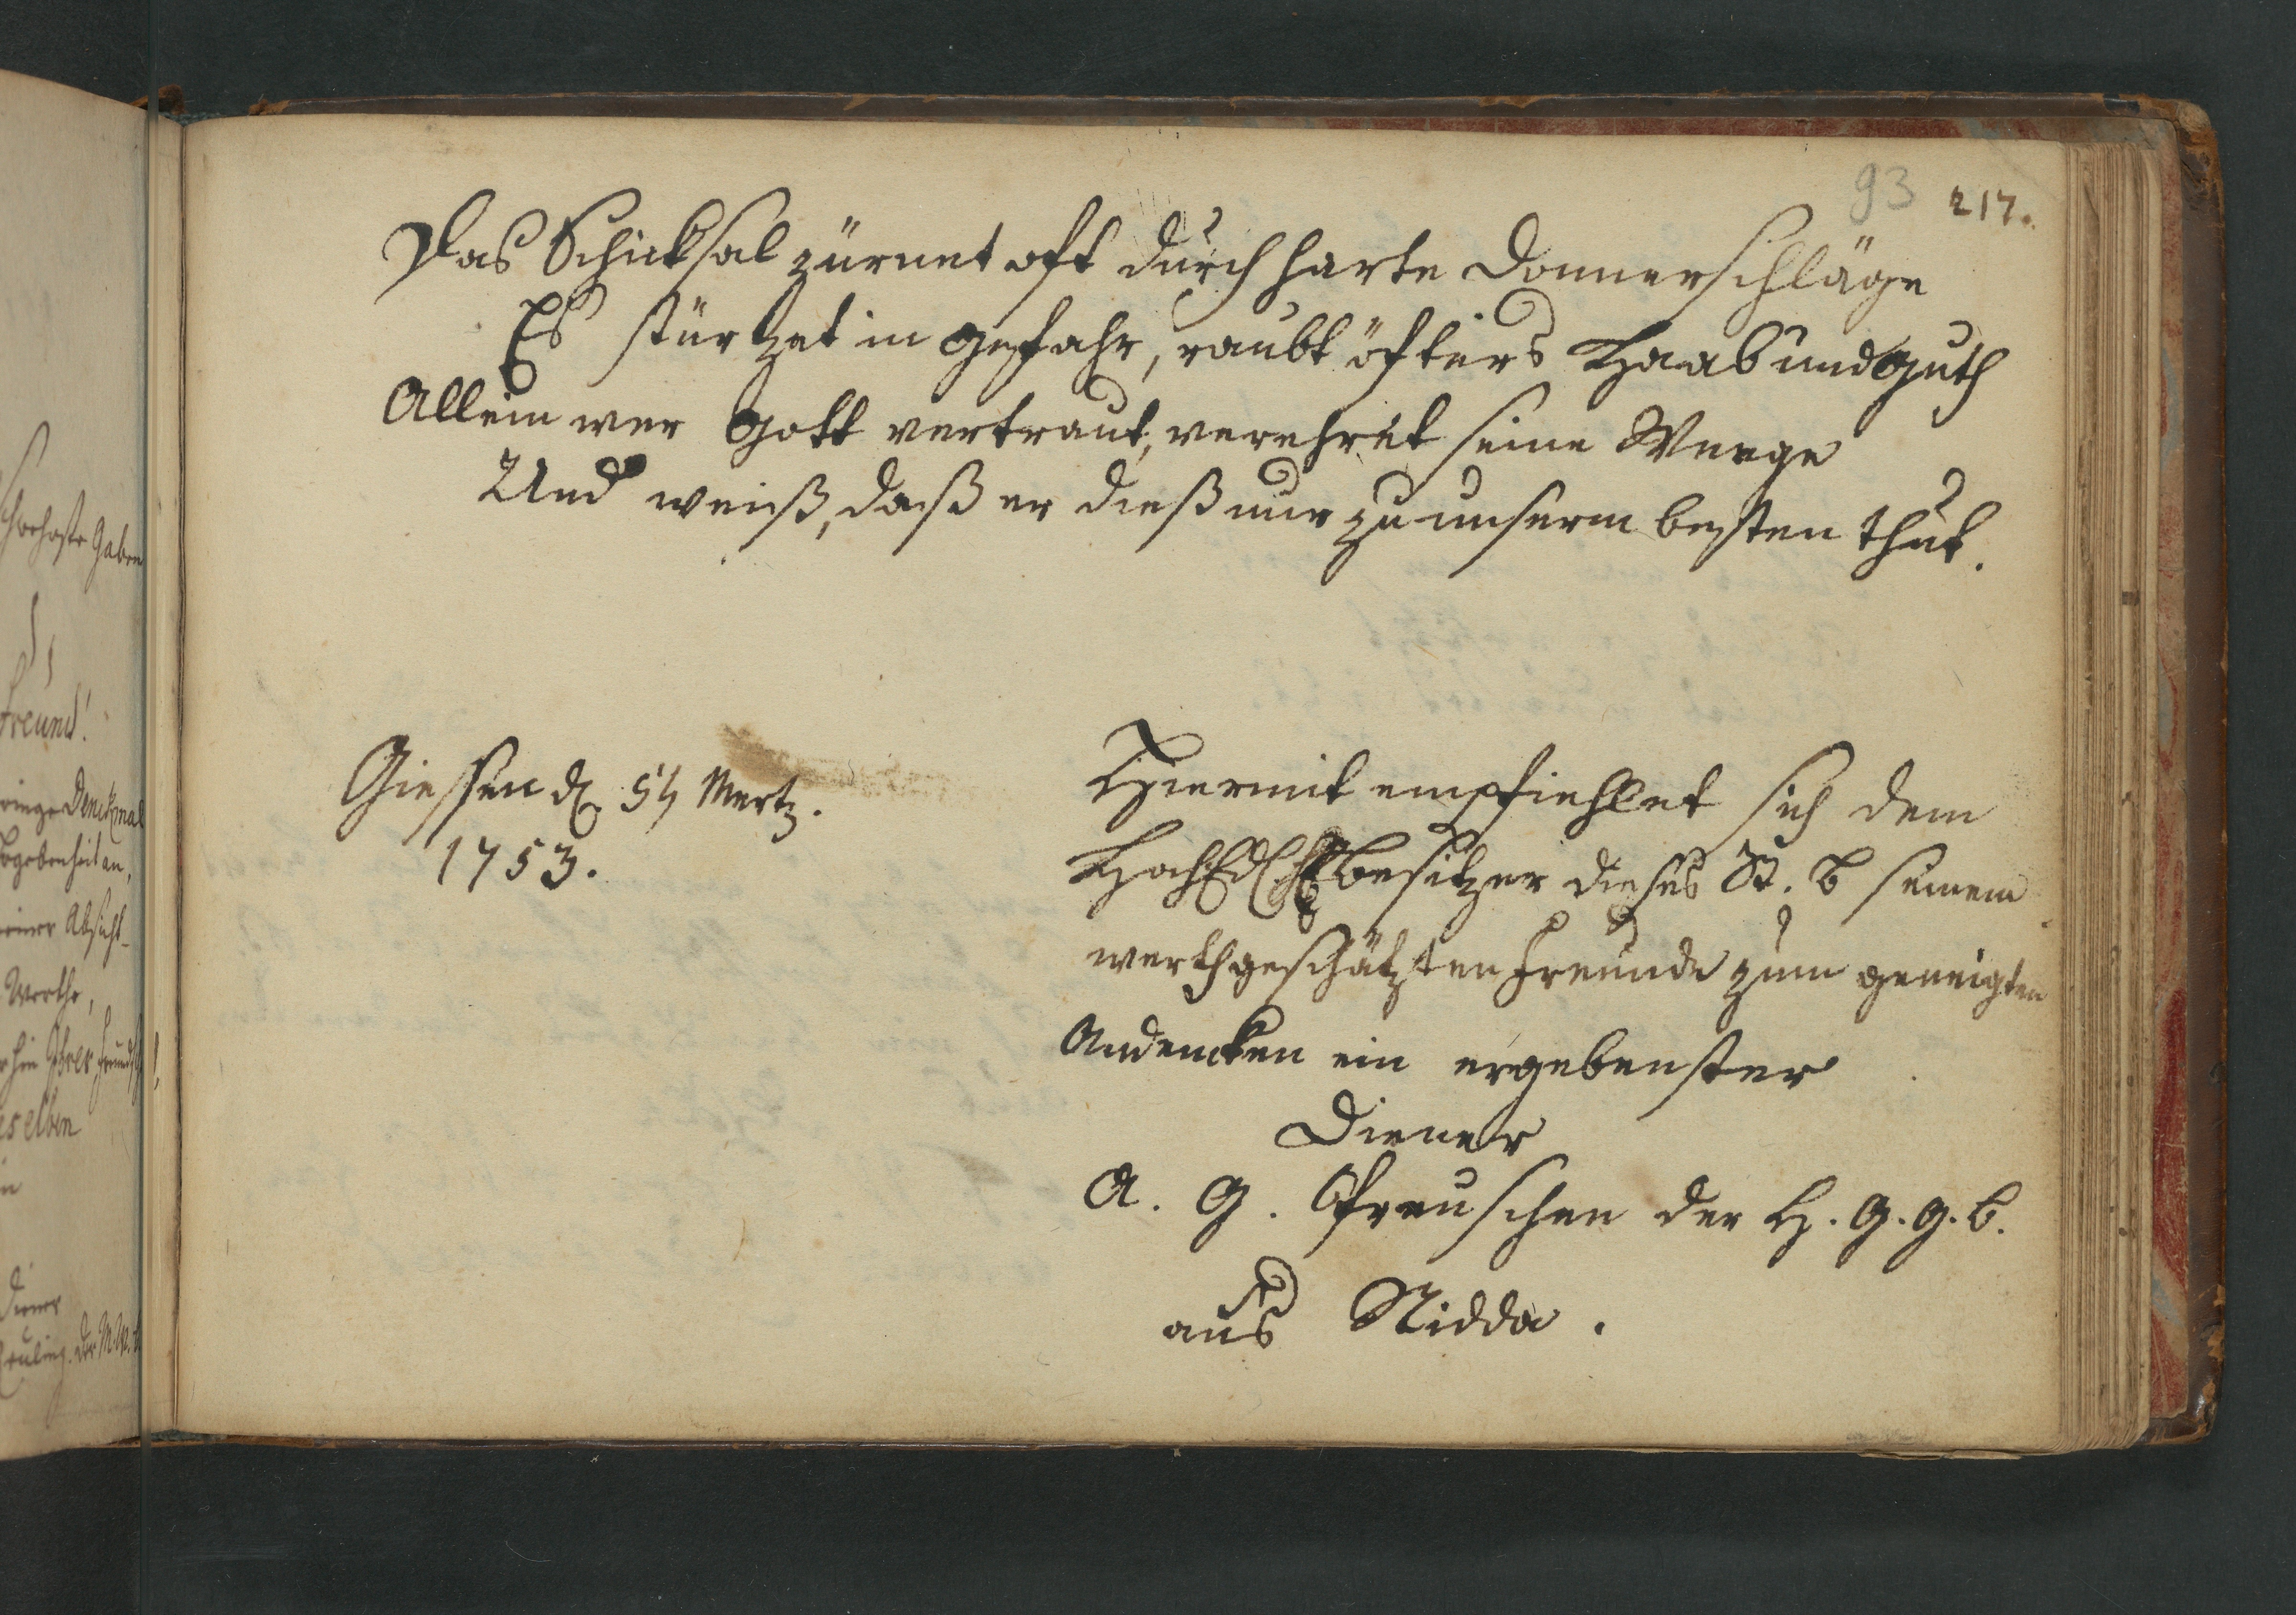 93 217.
Das Schicksal zürnet oft durch harte Donnerschläge
Es stürtzet in Gefahr, raubt öfters Haab und Guth
Allein wer Gott vertraut, verehret seine Weege
Und weiß, daß er dieß nur zu unserm besten thut.
Giessen d. 5t Mertz.
1753.
Hiermit empfiehlet sich dem
HochEd. besitzer dieses St. B seinem
werthgeschätzten Freunde zum geneigten
Andencken ein ergebenster
Diener
A. G. Preuschen der H. G. G. B.
aus Nidda.
Gaben
freund!
Denckmal
begebenheit an,
einer Absicht
Werthe,
selben
Diener